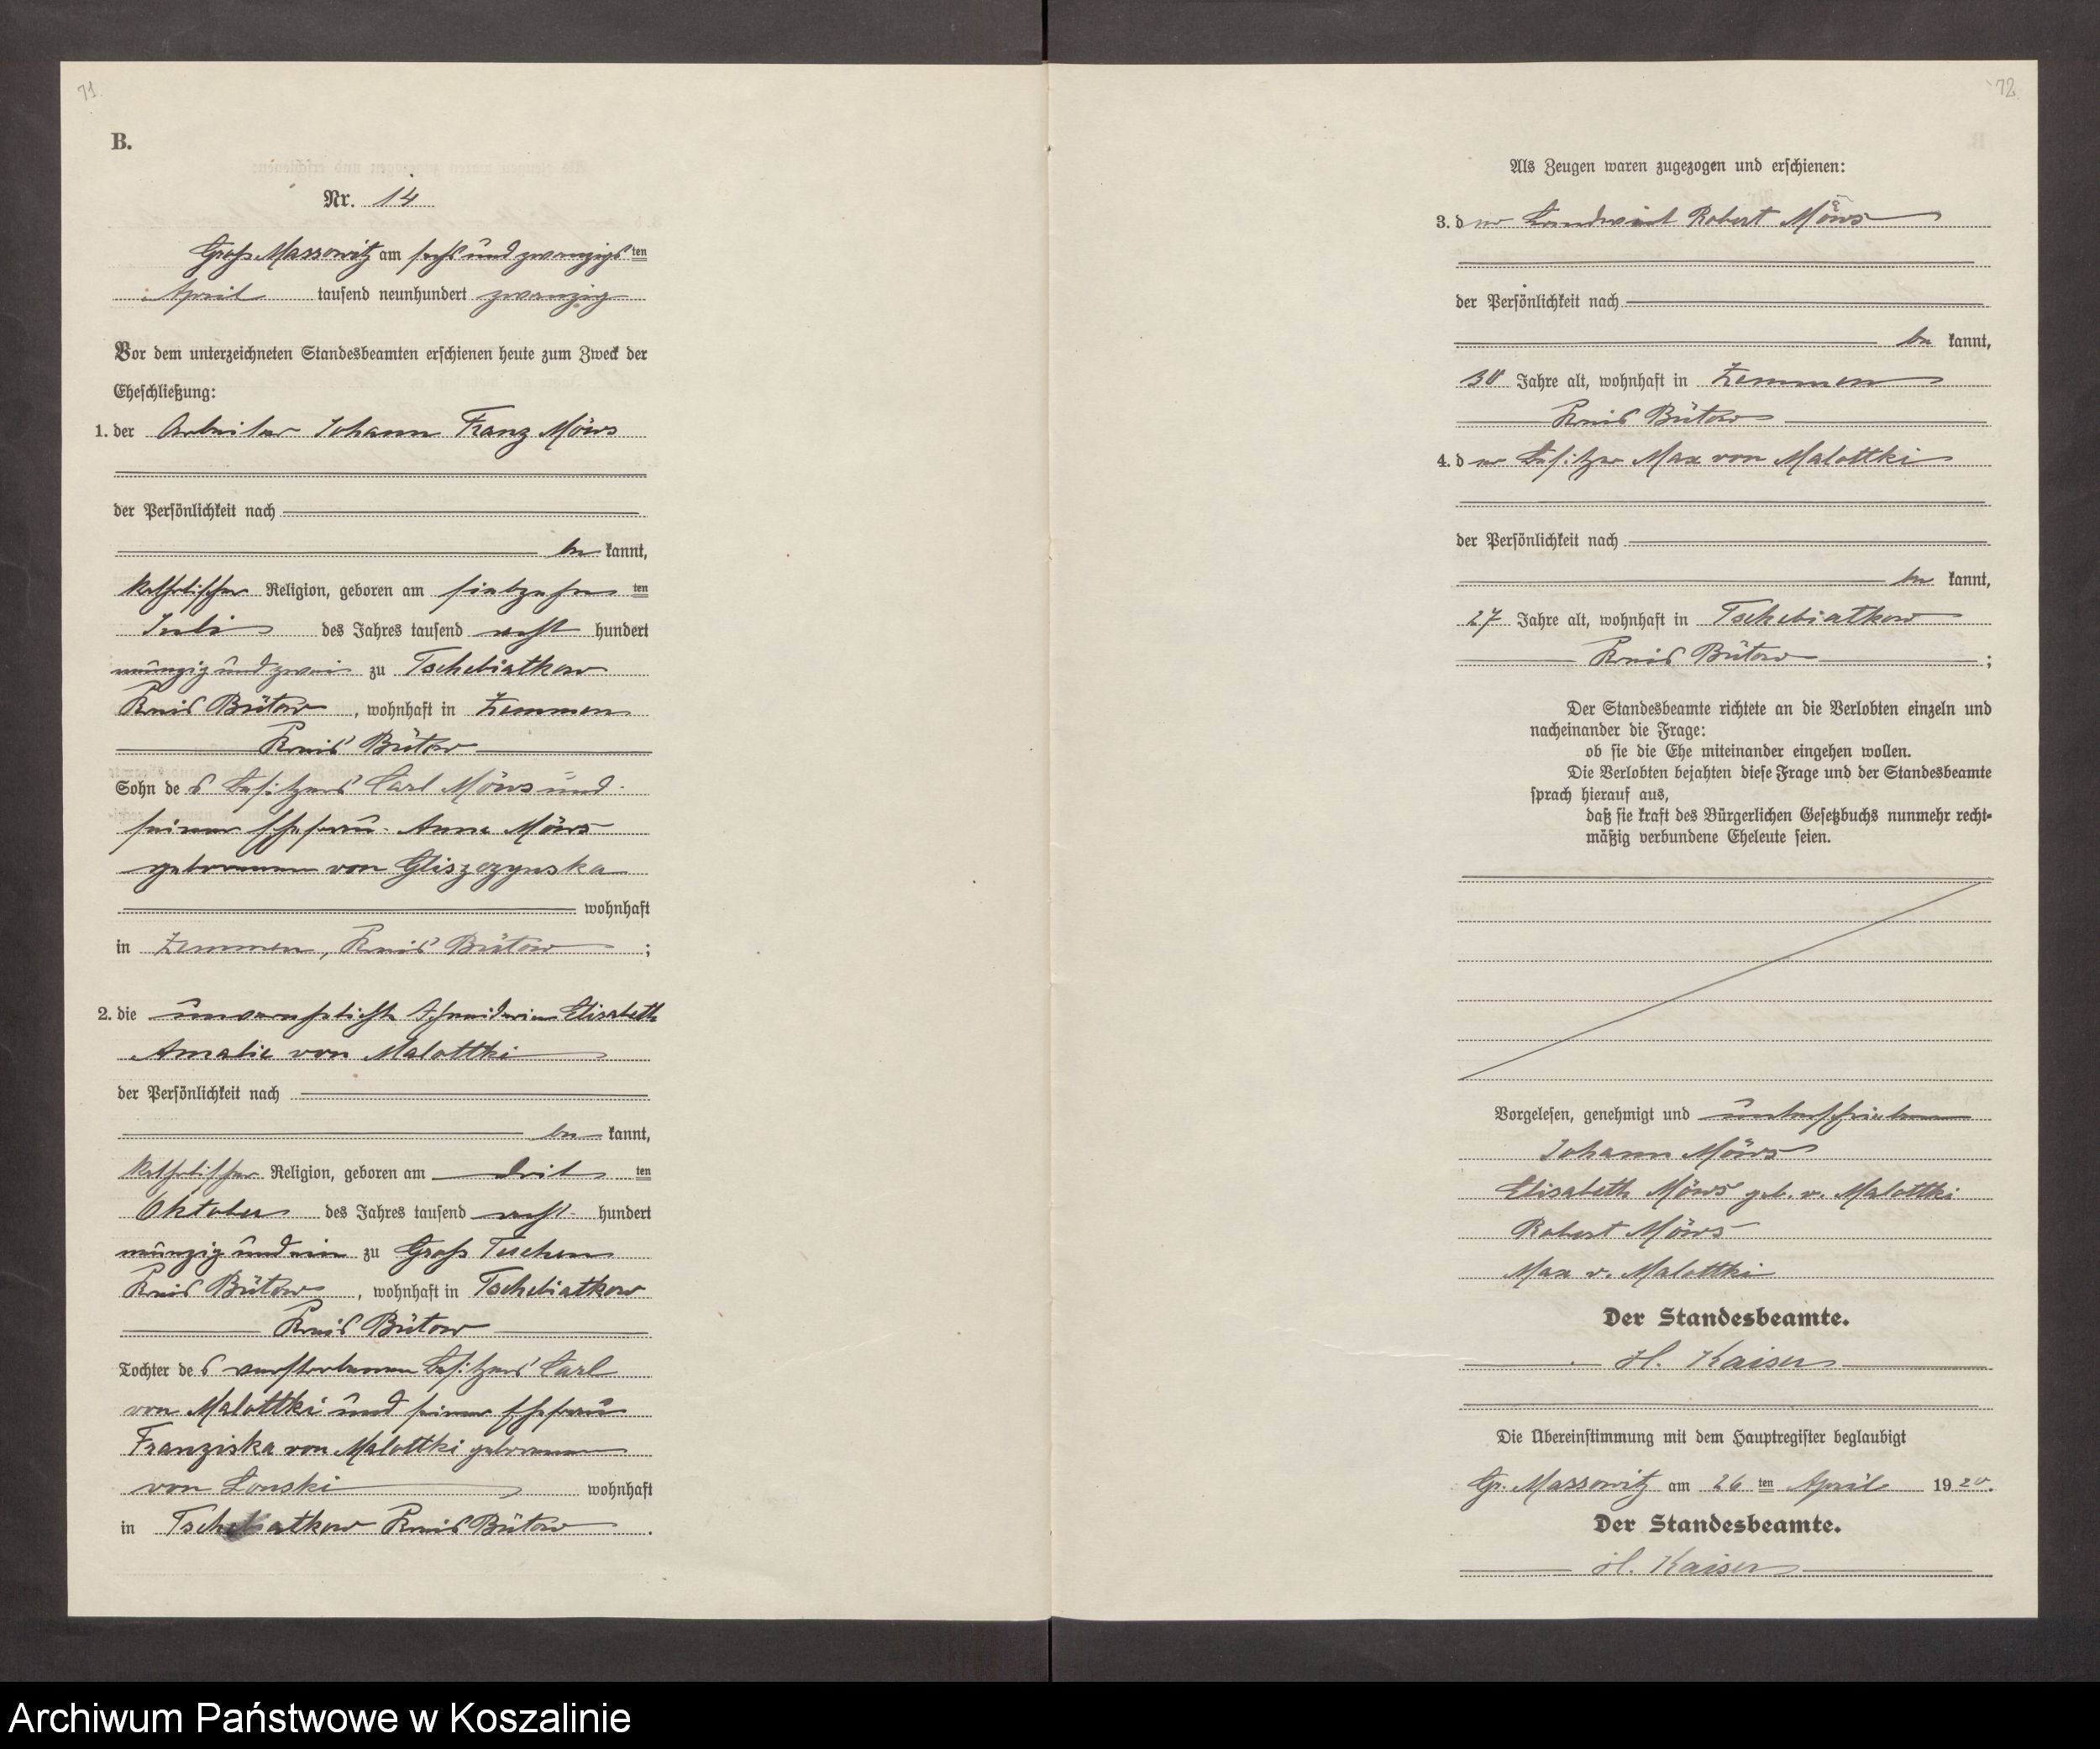 71.
B.
Nr. 14
Groß Massowitz am sechs und zwanzigsten
April tausend neunhundert zwanzig
Vor dem unterzeichneten Standesbeamten erschienen heute zum Zweck der
Eheschließung:
1. der Arbeiter Johann Franz Möws
der Persönlichkeit nach
be kannt,
katholischer Religion, geboren am siebzehn ten
Juli des Jahres tausend acht hundert
neunzig und zwei zu Tschebiatkow
Kreis Bütow, wohnhaft in Zemmen
Kreis Bütow
Sohn des Besitzers Carl Möws und
seiner Ehefrau Anna Möws
geborenen von Gliszczynska
wohnhaft
in Zemmen, Kreis Bütow;
2. die unverehelichte Schneiderin Elisabeth
Amalie von Malottki
der Persönlichkeit nach
be kannt,
katholischer Religion, geboren am drit ten
Oktober des Jahres tausend acht hundert
neunzig und ein zu Groß Tuchen
Kreis Bütow, wohnhaft in Tschebiatkow
Kreis Bütow
Tochter des verstorbenen Besitzers Carl
von Malottki und seiner Ehefrau
Franziska von Malottki geborenen
von Lonski wohnhaft
in Tschebiatkow Kreis Bütow.
72
Als Zeugen waren zugezogen und erschienen:
3. der Landwirt Robert Möws
der Persönlichkeit nach
be kannt,
30 Jahre alt, wohnhaft in Zemmen
Kreis Bütow
4. der Besitzer Max von Malottki
der Persönlichkeit nach
be kannt,
27 Jahre alt, wohnhaft in Tschebiatkow
Kreis Bütow;
Der Standesbeamte richtete an die Verlobten einzeln und
nacheinander die Frage:
ob sie die Ehe miteinander eingehen wollen.
Die Verlobten bejahten diese Frage und der Standesbeamte
sprach hierauf aus,
daß sie kraft des Bürgerlichen Gesetzbuchs nunmehr recht-
mäßig verbundene Eheleute seien.
Vorgelesen, genehmigt und unterschrieben
Johann Möws
Elisabeth Möws geb. v. Malottki
Robert Möws
Max v. Malottki
Der Standesbeamte.
H. Kaiser
Die Übereinstimmung mit dem Hauptregister beglaubigt
Gr. Massowitz am 26 ten April 1920.
Der Standesbeamte.
H. Kaiser
Archiwum Państwowe w Koszalinie